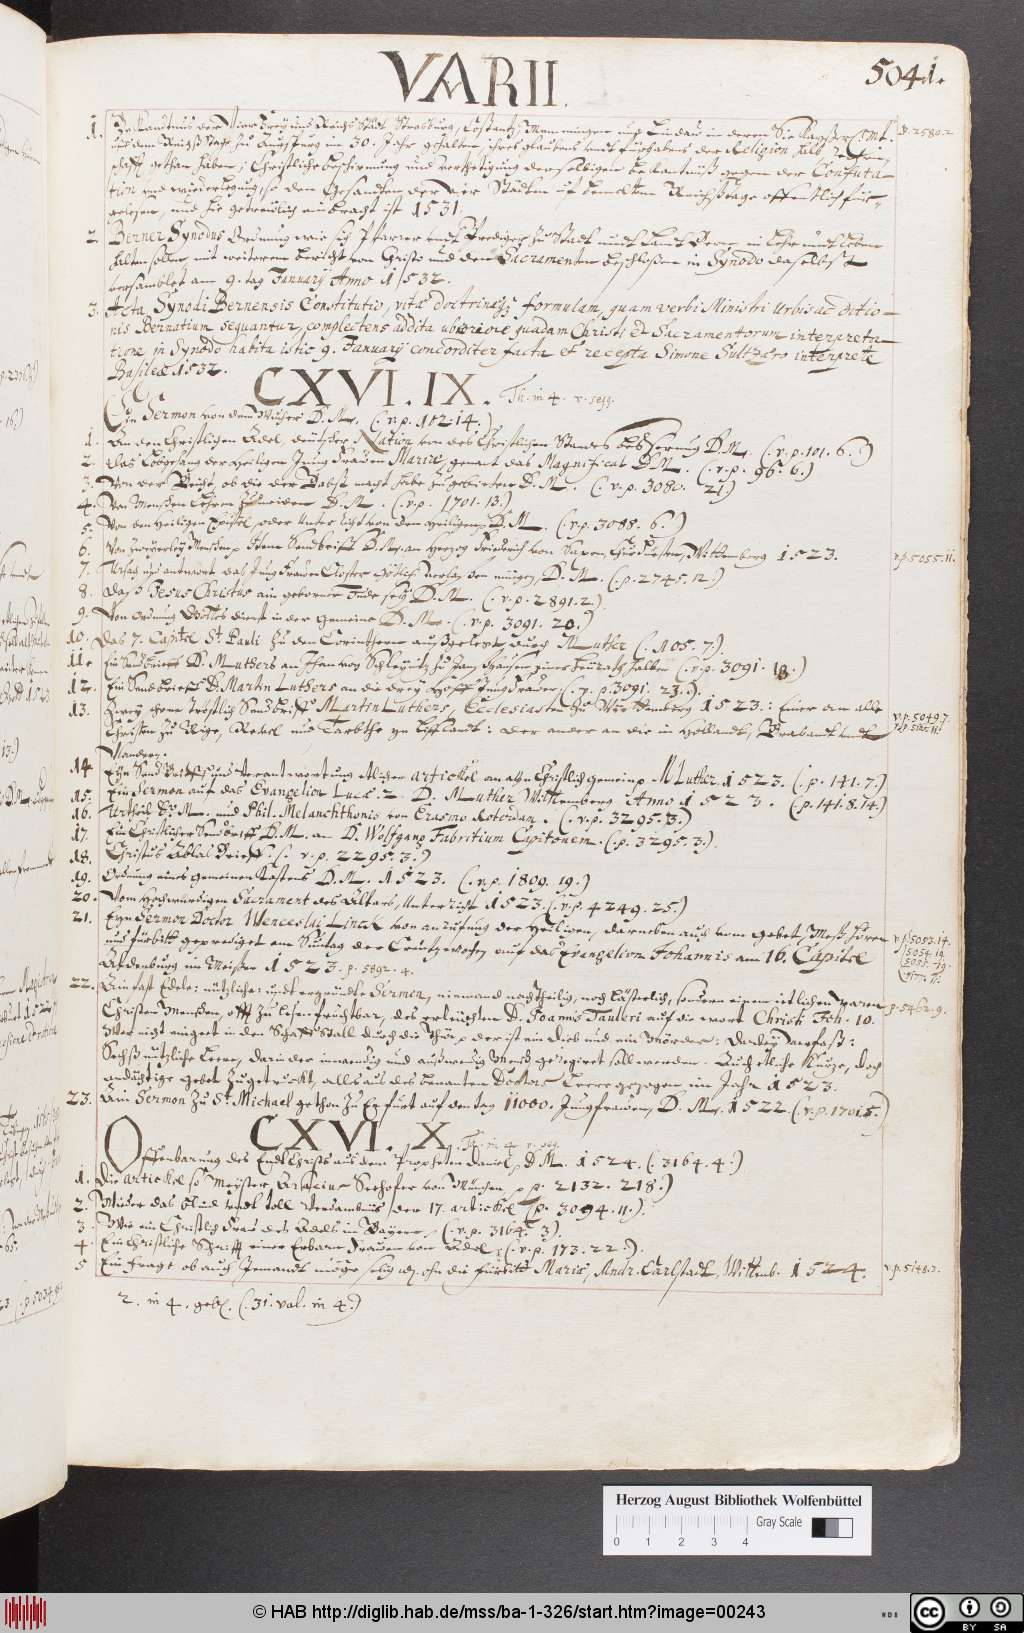 VARII.
5041.
1. Bekandtnus der Vier Frey und Reichs Stätt, Strasburg, Costantz, Memmingen und Lindau, in deren Sie Kayß. Mt.
v.p. 2580.2.
auf dem Reichs Tage zu Augspurg im 30. Jahr gehalten, ihres glaubens und fürhabens der Religion halb
schafft gethan haben; Christliche beschirmung und verthetigung derselbigen Bekantnuß gegen der Confuta-
tion und wiederlegung, so den Gesandten der vier Stätten uf bemeltem Reichstage offentlich für-
gelesen, und hie getreulich einbracht ist 1531.
2. Berner Synodus Ordnung wie sich Pfarrer und Prediger zu Statt und Land Bern in Lehr und Leben
halten sollen mit weiterem bericht von Christo und den Sacramenten beschloßen in Synodo daselbst
versamblet am 9. tag January Anno 1532.
3. Acta Synodi Bernensis Constitutio, vitæ doctrinæq; formulam, quam verbi Ministri Urbis ac ditio-
nis Bernatium sequantur, complectens addita uberiore quadam Christi et Sacramentorum interpreta-
tione, in Synodo habita istic 9. January concorditer facta et recepta Simone Sultzero interprete
Basileæ 1532.
CXVI. IX. Th. in 4. v. segg.
Ein Sermon von dem Wucher D. M. (: v. p. 102. 14.)
1. An den Christlichen Adel, deutscher Nation von des Christlichen Standes besserung D. M. (: v. p. 101. 6.)
2. Das Lobgesang der Heiligen Jungfrauen Mariæ, genant das Magnificat D. M. (: v. p. 96. 6.)
3. Von der Beicht, ob die der Babst macht habe zu gebieten D. M. (: v. p. 3080. 21)
4. Von Menschen Lehren zu meiden D. M. (: v. p. 1701. 13.)
5. Von den Heiligen Epistel, oder Unterricht von den Heiligen, D. M. (: v. p. 3088. 6.)
6. Von zweyerley Menschen, Item Sendbrieff D. M. an Hertzog Friedrich von Saxen, Churfürsten, Wittemberg 1523.
v. p. 5055. 11.
7. Ursach und antwort das Jungfrauen Closter Göttlich verlassen mügen, D. M. (: p. 2745. 12.)
8. Das Jesus Christus ain geborner Jude sey D. M. (: v. p. 2891. 2.)
9. Von Ordnung Gottes dienst in der Gemeine D. M. (: v. p. 3091. 20.)
10. Das 7. Capitel St. Pauli zu den Corinthern ausgelegt, durch M Luther (: 105. 7.)
11. Ein Sendbrieff D. M. Luthers an Jhan von Schleynitz zu Jan, Hausen, einer heirath halber (: v. p. 3091. 18.)
12. Ein Sendbrieff D. Martin Luthers an die drey Hoff Jungfrauen (: v. p. 3091. 23.)
13. Zwey schöne tröstlich Sendbriff Martin Luthers, Ecclesiasten zu Wittemberg 1523: einer an alle
v. p. 5049. 7.
Christen zu Rige, Revel und Tarbthe yn Liffland: der ander an die in Holland, Braband und
Flandern.
14. Eyn Sendbrieff und Verantwortung etlicher artickel an ayn Christlich gemein, M Luther. 1523. (: p. 141. 7.)
15. Ein Sermon auf das Evangelion Lucæ. 2. D. M Luther Wittemberg Anno 1523. (: p. 141. 8. 14.)
16. Urtheil D. M. und Phil. Melanchthonis von Erasmo Roterdam. (: v. p. 3295. 3.)
17. Ein Christlicher Sendbrieff D. M. an D. Wolfgang Fabritium Capitonem. (: p. 3295. 3.)
18. Christus Ablas Brieff. (: v. p. 2295. 3.)
19. Ordnung eines gemeinen Kastens D. M. 1523. (: v. p. 1809. 19.)
20. Vom Hochwürdigen Sacrament des Altars, Unterricht 1523. (: v. p. 4249. 25.)
21. Eyn Sermon Doctor Wenceslai Linck von anruffung der Heiligen, darneben auch vom gebet, Meß hören
v. p. 5053. 14.
und fürbitt geprediget am Suntag der Creutzwochen, auf das Evangelion Johannis am 16. Capitel
5054. 19.
Aldenburg in Meißen 1523. p. 5892. 4.
22. Ain fast Edele: nützliche: und ergründte Sermon, niemand nachtheilig, noch lästerlich, sondern einem ietlichen waren
p. 5462. 9.
Christen Menschen, offt zu lesen fruchtbar, des erleuchten D. Joannis Tauleri auf die wort Christi Joh. 10.
Wer nicht eingeet in den Schaffstall durch die Thür, der ist ein Dieb und ain Mörder: Dabey verfast:
Sechs nutzliche Leere, darin der inwendig und außwendig Mensch geregiret soll werden. Auch etliche kurtze, doch
andächtige gebet zugetruckt, alles aus des benanten Doctors Leere gezogen, im Jahr 1523.
23. Ain Sermon zu St. Michael gethon zu Erfurt auf den tag 11000. Jungfrauen, D. M. 1522. (: v. p. 1701. 5.)
CXVI. X. Th. in 4. v. seg.
Offenbarung des Endtchrists aus dem Propheten Daniel, D. M. 1524. (: 3164. 4.)
1. Die artickel so Meister, Arsacius Seehofer von München, p. 2132. 218.)
2. Wider das blind und toll Verdambnus, der 17. artickel (p. 3094. 11.)
3. Wie ein Christlich Frau des Adels in Bayern, (: v. p. 3164. 3.)
4. Ein Christliche Schrifft einer Erbarn Frauen von Adel, (: v. p. 173. 22.)
5. Ein Frage ob auch Jemandt möge selig w. ohn die fürbitt Mariæ, Andr. Carlstadt, Wittemb. 1524.
v. p. 5148. 3.
2. in 4. gebl. (: 31. val. in 4.)
Herzog August Bibliothek Wolfenbüttel
Gray Scale
0 1 2 3 4
© HAB http://diglib.hab.de/mss/ba-1-326/start.htm?image=00243
WDB
cc BY SA